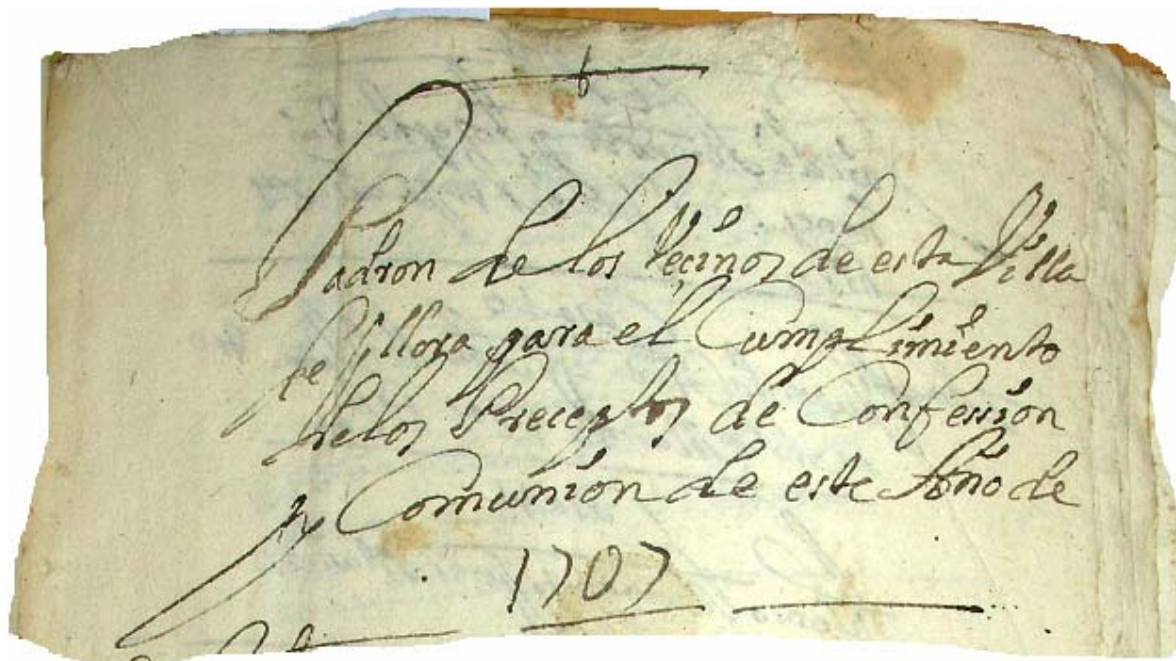 Padron de los Veçinos de esta Villa
de Yllora para el Cumplimiento
de los Preceptos de Confession
y Comunión de este Año de
1707